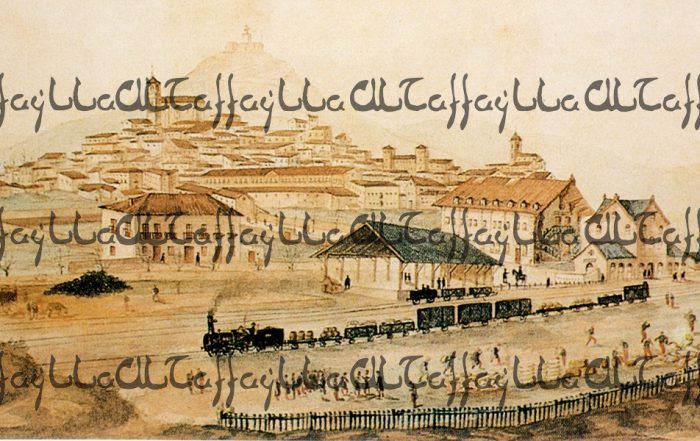 fayllaAlTaffayllaAlTaffayllaAlTaffa
fayllaAlTaffayllaAlTaffayllaAlTaffa
fayllaAlTaffayllaAlTaffayllaAlTaffa